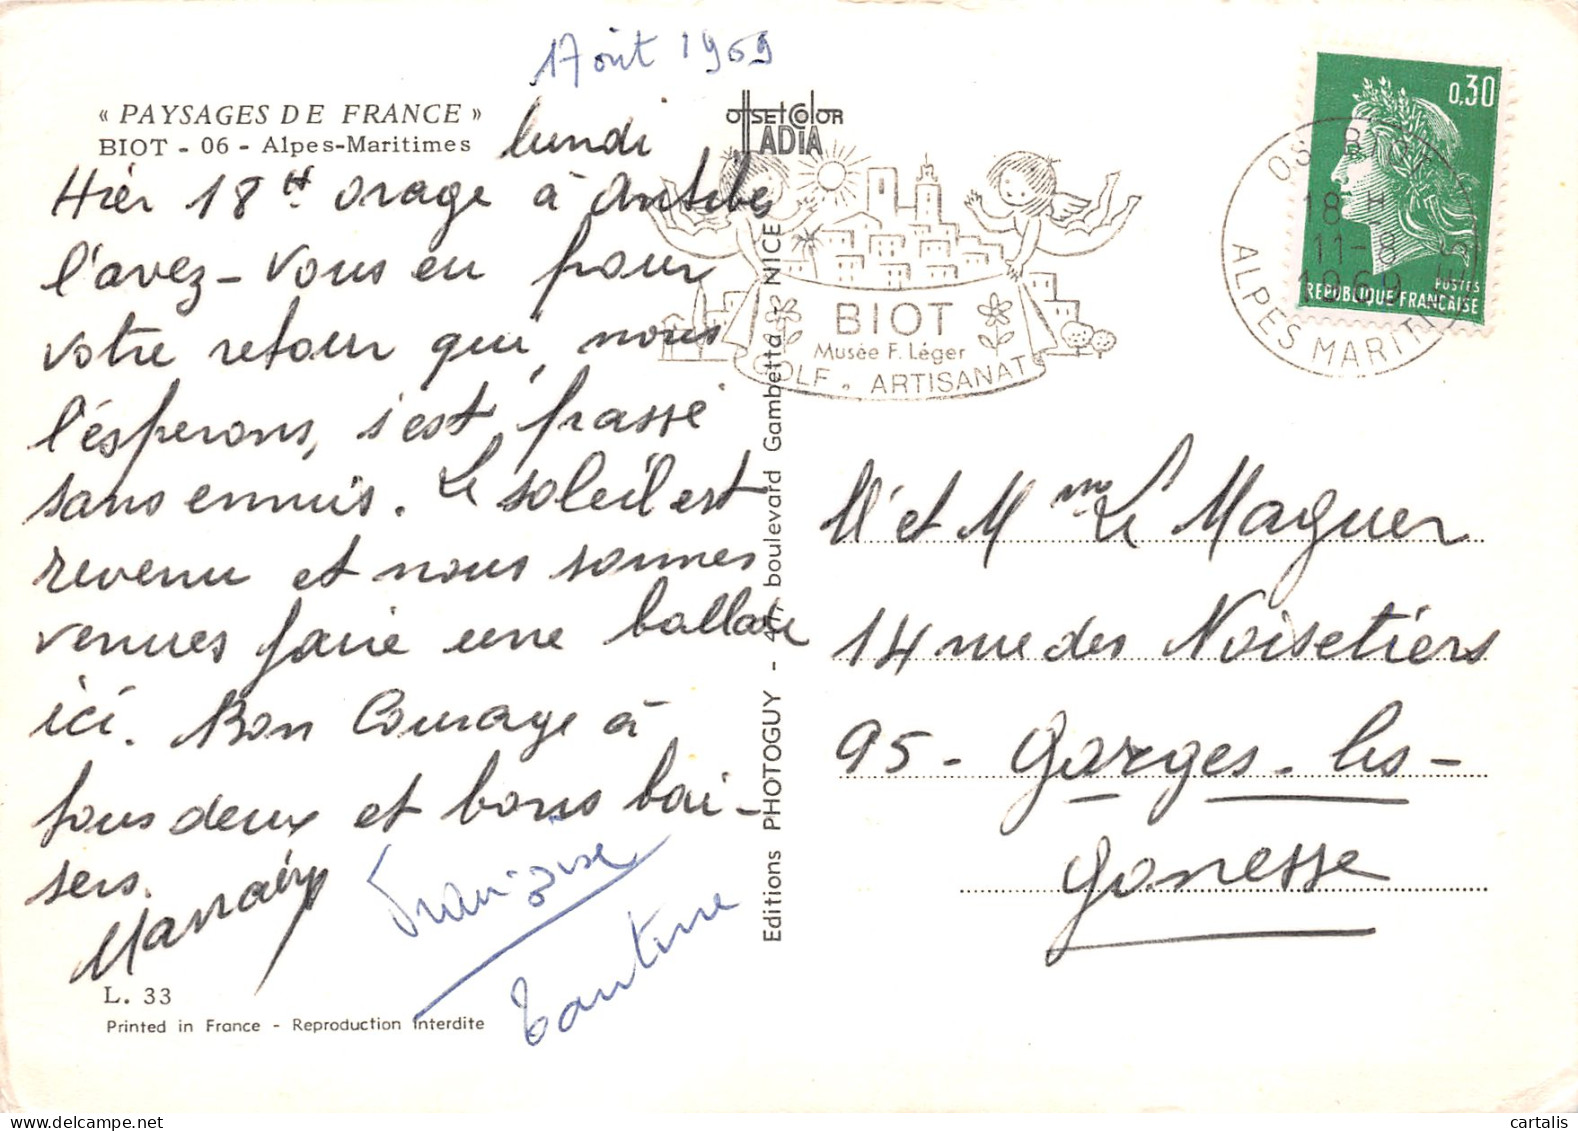 17 Août 1969
« PAYSAGES DE FRANCE »
BIOT - 06 - Alpes-Maritimes
lundi
Hier 18 H orage à Antibes
l'avez-vous eu pour
votre retour qui, nous
l'ésperons, s'est passé
sans ennuis. Le soleil est
revenu et nous sommes
venues faire une ballade
ici. Bon Courage à
tous deux et bons bai-
sers.
Françoise
Tantine
L. 33
Printed in France - Reproduction interdite
OffSET COLOR
ADIA
BIOT
Musée F. Léger
GOLF. ARTISANAT
Editions PHOTOGUY - boulevard Gambetta - NICE
0,30
POSTES
REPUBLIQUE FRANCAISE
BIOT
18 H
11-8
1969
ALPES MARITIMES
M et Mme Le Maguer
14 rue des Noisetiers
95 - Garges-les-
Gonesse
cartalis